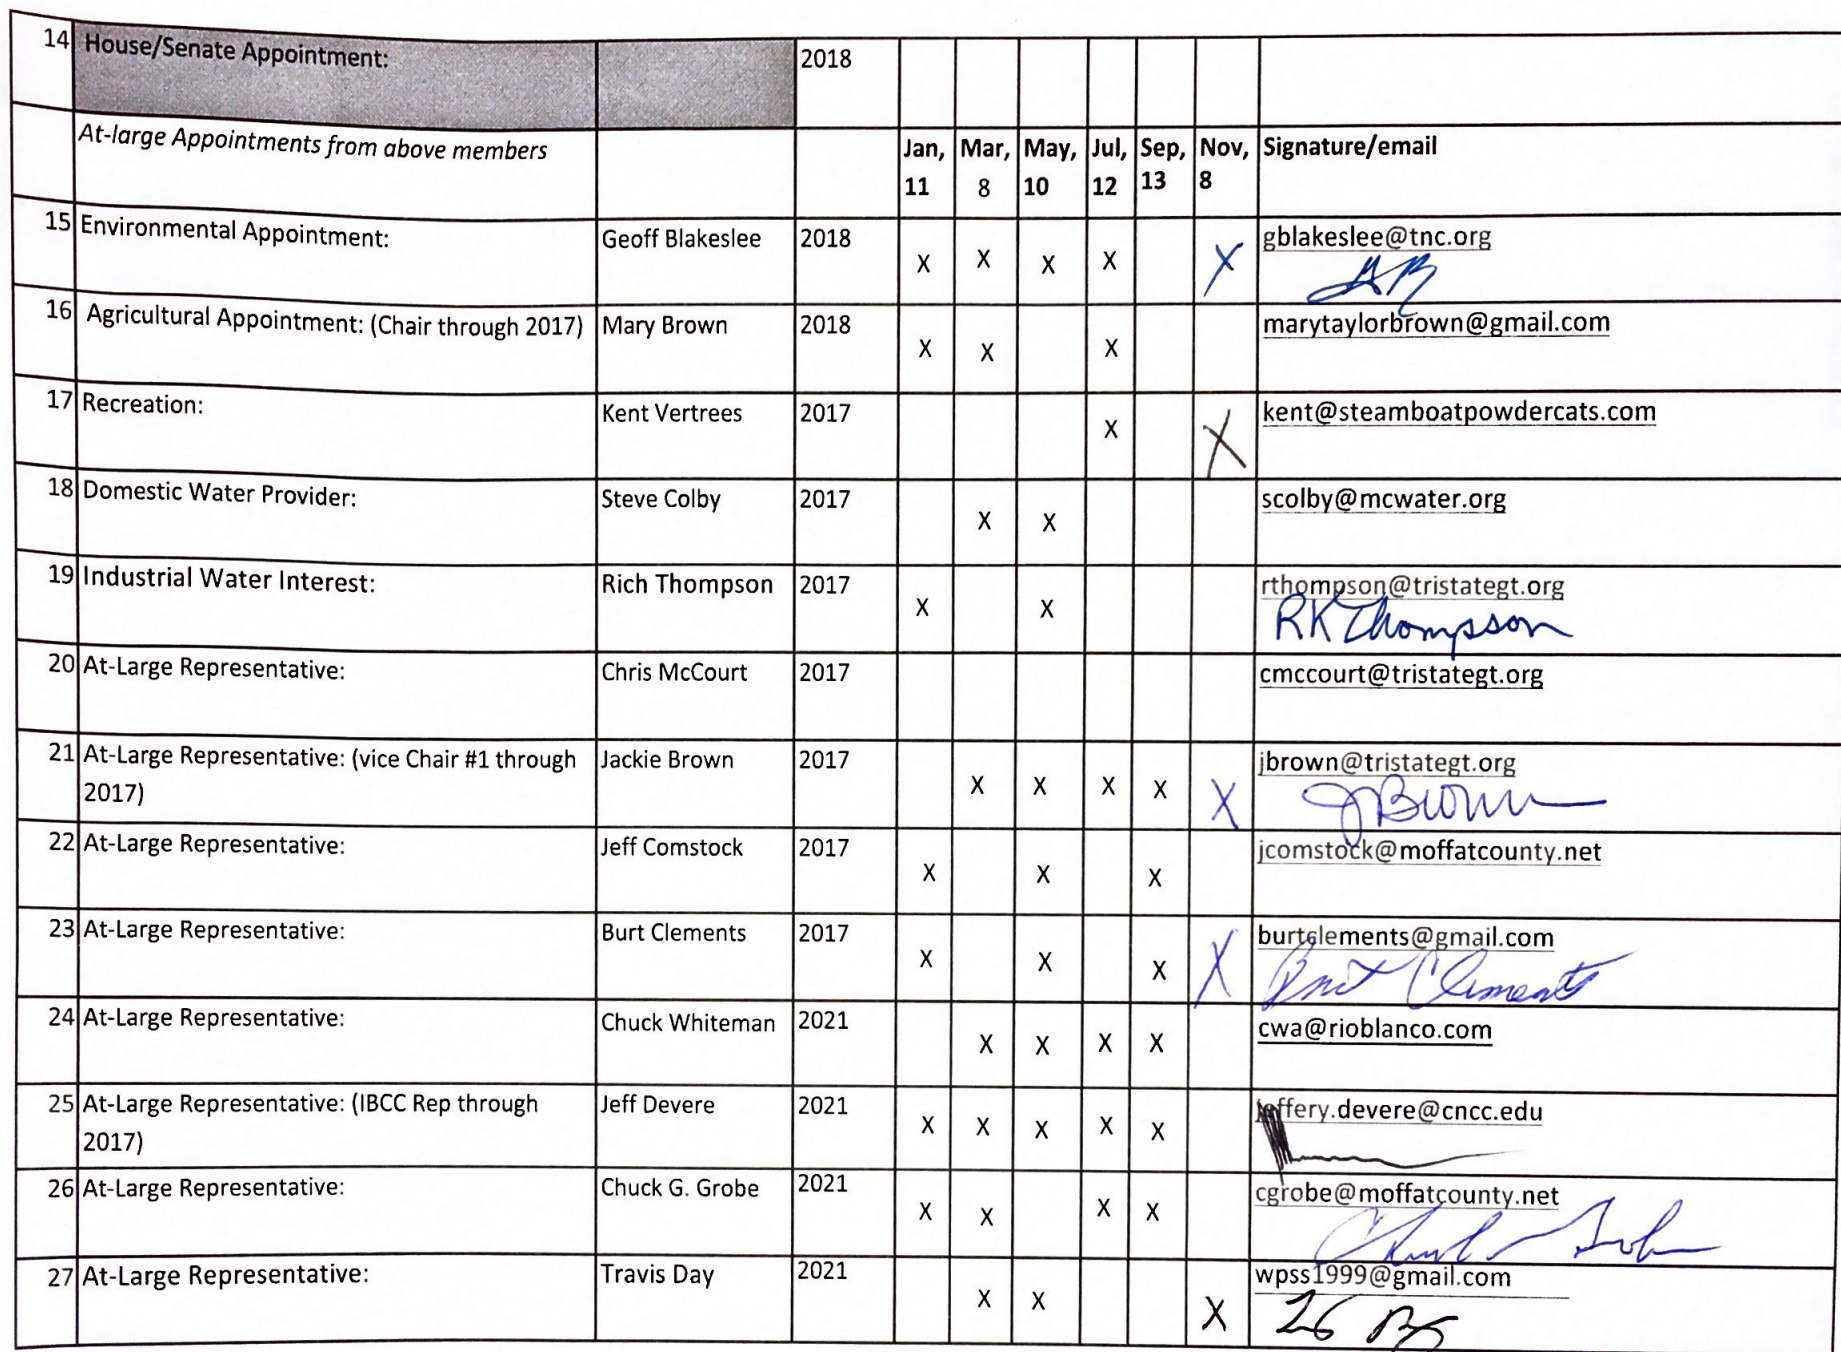 14 House/Senate Appointment: 2018
At-large Appointments from above members Jan, 11 Mar, 8 May, 10 Jul, 12 Sep, 13 Nov, 8 Signature/email
15 Environmental Appointment: Geoff Blakeslee 2018 X X X X X gblakeslee@tnc.org
16 Agricultural Appointment: (Chair through 2017) Mary Brown 2018 X X X marytaylorbrown@gmail.com
17 Recreation: Kent Vertrees 2017 X X kent@steamboatpowdercats.com
18 Domestic Water Provider: Steve Colby 2017 X X scolby@mcwater.org
19 Industrial Water Interest: Rich Thompson 2017 X X rthompson@tristategt.org
RK Thompson
20 At-Large Representative: Chris McCourt 2017 cmccourt@tristategt.org
21 At-Large Representative: (vice Chair #1 through Jackie Brown 2017 X X X X X jbrown@tristategt.org
2017) JBrown
22 At-Large Representative: Jeff Comstock 2017 X X X jcomstock@moffatcounty.net
23 At-Large Representative: Burt Clements 2017 X X X X burtclements@gmail.com
Burt Clements
24 At-Large Representative: Chuck Whiteman 2021 X X X X cwa@rioblanco.com
25 At-Large Representative: (IBCC Rep through Jeff Devere 2021 X X X X X jeffery.devere@cncc.edu
2017)
26 At-Large Representative: Chuck G. Grobe 2021 X X X X cgrobe@moffatcounty.net
27 At-Large Representative: Travis Day 2021 X X X wpss1999@gmail.com